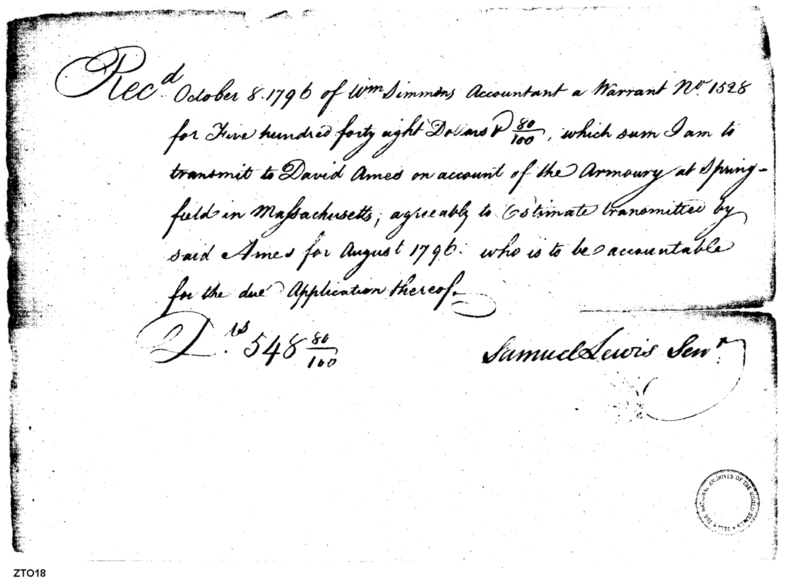 Rec.d October 8. 1796 of Wm Simmons Accountant a Warrant No. 1528
for Five hundred forty eight Dollars & 80/100, which sum I am to
transmit to David Ames on account of the Armoury at Spring-
field in Massachusetts, agreeably to Estimate transmitted by
said Ames for August 1796. who is to be accountable
for the due Application thereof.
D.rs 548 80/100
Samuel Lewis Senr.
THE NATIONAL ARCHIVES OF THE UNITED STATES
ZTO18